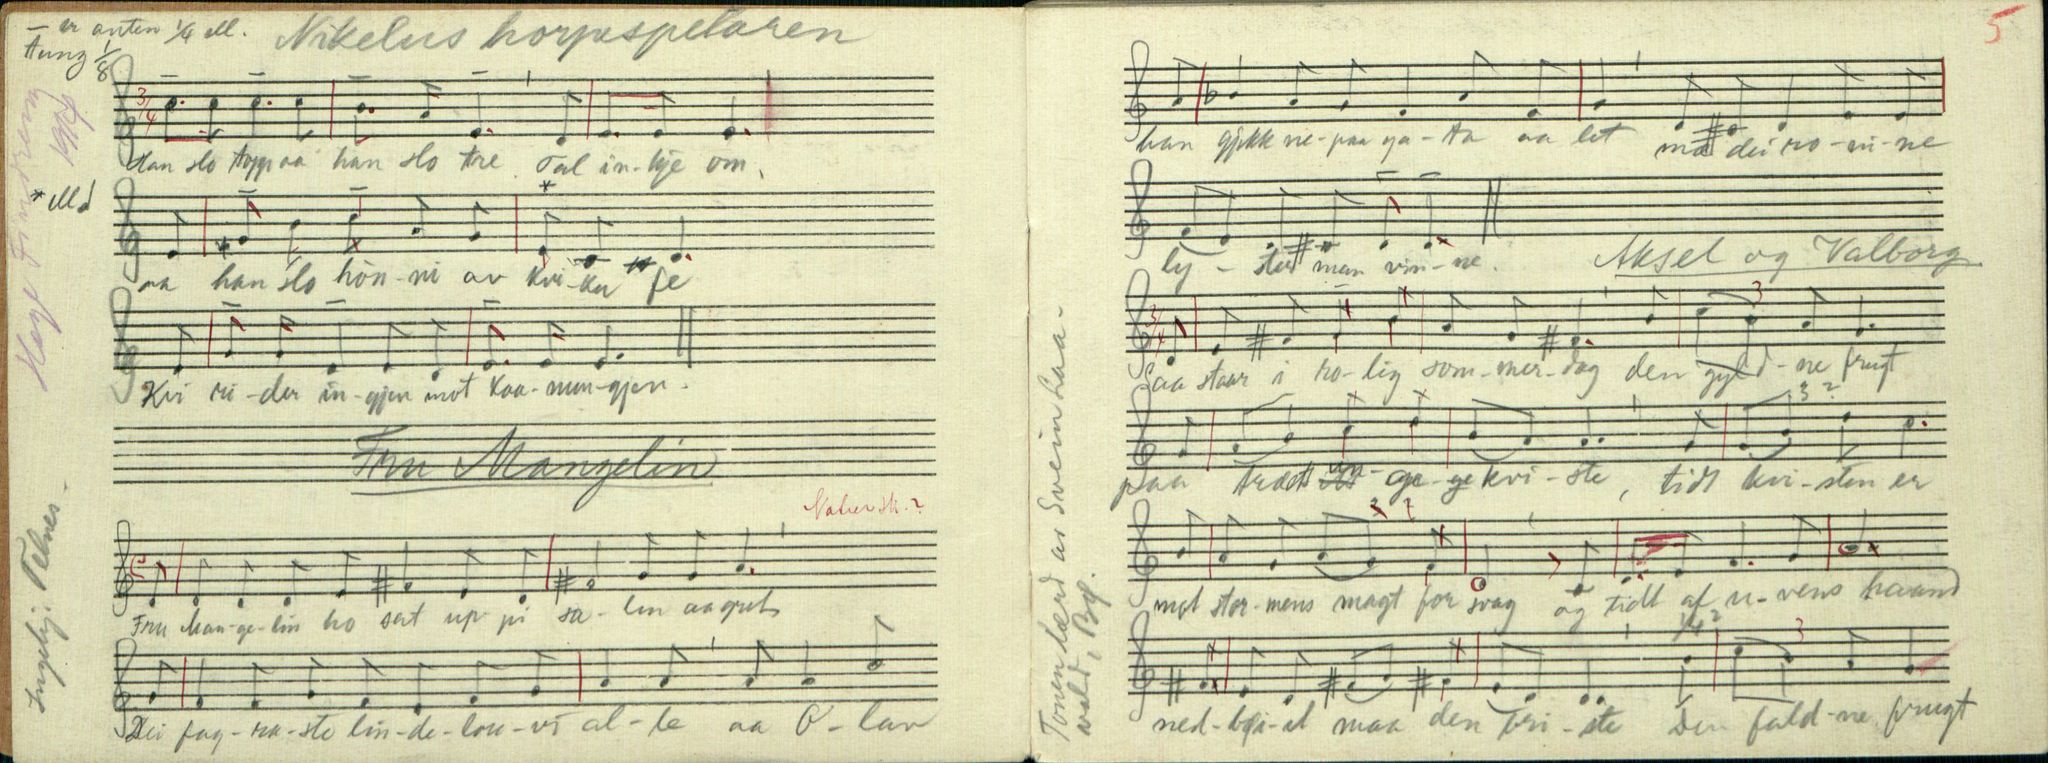 – er anten 1/4 el.
1/8
Nikelus horpespelaren
3/4
Han slo togg aa han slo tre. Tal in-kje om,
aa han slo hòn-ni av kvi-ku fe
Kvi ri-der in-gjen mot Kaa-nun-gjen.
Fru Mangelin
Fru Man-ge-lin ho sat up-pi sa-len aa gret
Dei fag-ra-ste lin-de-lou-vi al-le aa O-lav
Ingebj. Telnes.
5
han gjekk ne-paa ga-ta aa let må dei ro-ni-ne
ly-ster man vin-ne.
Aksel og Valborg
3/4
aa staar i ro-lig som-mer-dag den gyld-ne frugt
3
paa træets un-ge kvi-ste, tidt kvi-sten er
3 ?
mot stor-mens magt for svag og tidt af u-vens haand
ned-böi-et maa den bri-ste Den fald-ne frugt
3
Tonen lærd av Sveinhaa-
vald, Bø.